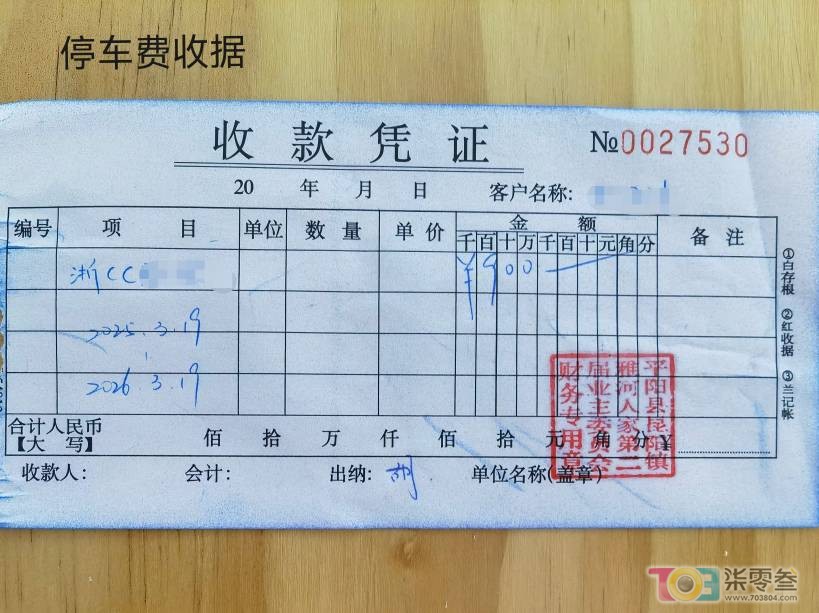 停车费收据
收款凭证 №0027530
20 年 月 日 客户名称:
编号 项目 单位 数量 单价 金额 备注
千百十万千百十元角分
浙CC ¥900
2025.3.19
2026.3.19
合计人民币【大写】 佰 拾 万 仟 佰 拾 元 角 分 ¥
收款人: 会计: 出纳: 单位名称(盖章)
平阳县昆阳镇
雅河人家第二
届业主委员会
财务专用章
①白存根 ②红收据 ③兰记帐
TO3 柒零叁
www.703804.com